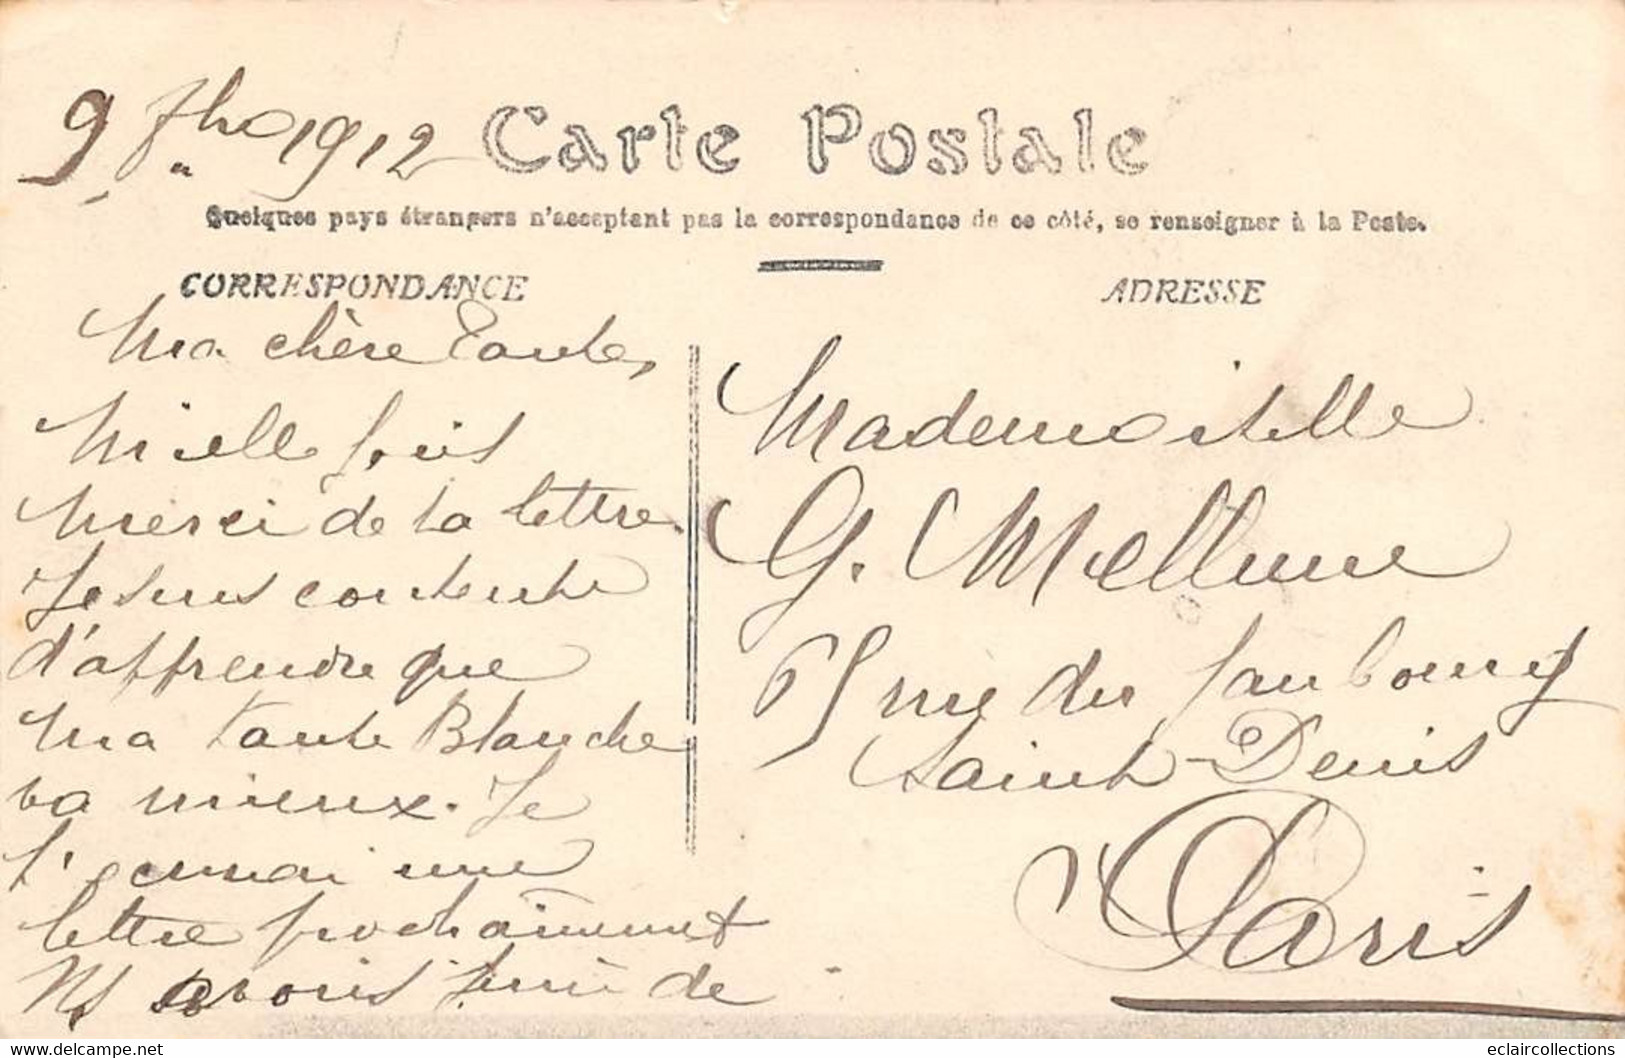 9 1912
Carte Postale
Quelques pays étrangers n'acceptent pas la correspondance de ce côté, se renseigner à la Poste.
CORRESPONDANCE
ADRESSE
Ma chère Tante,
Mille fois
merci de la lettre.
Je suis contente
d'apprendre que
ma tante Blanche
va mieux. Je
t'enverrai une
lettre prochainement
Ns avons fini de
Mademoiselle
G.
65 rue du faubourg
Saint-Denis
Paris
www.delcampe.net
eclaircollections